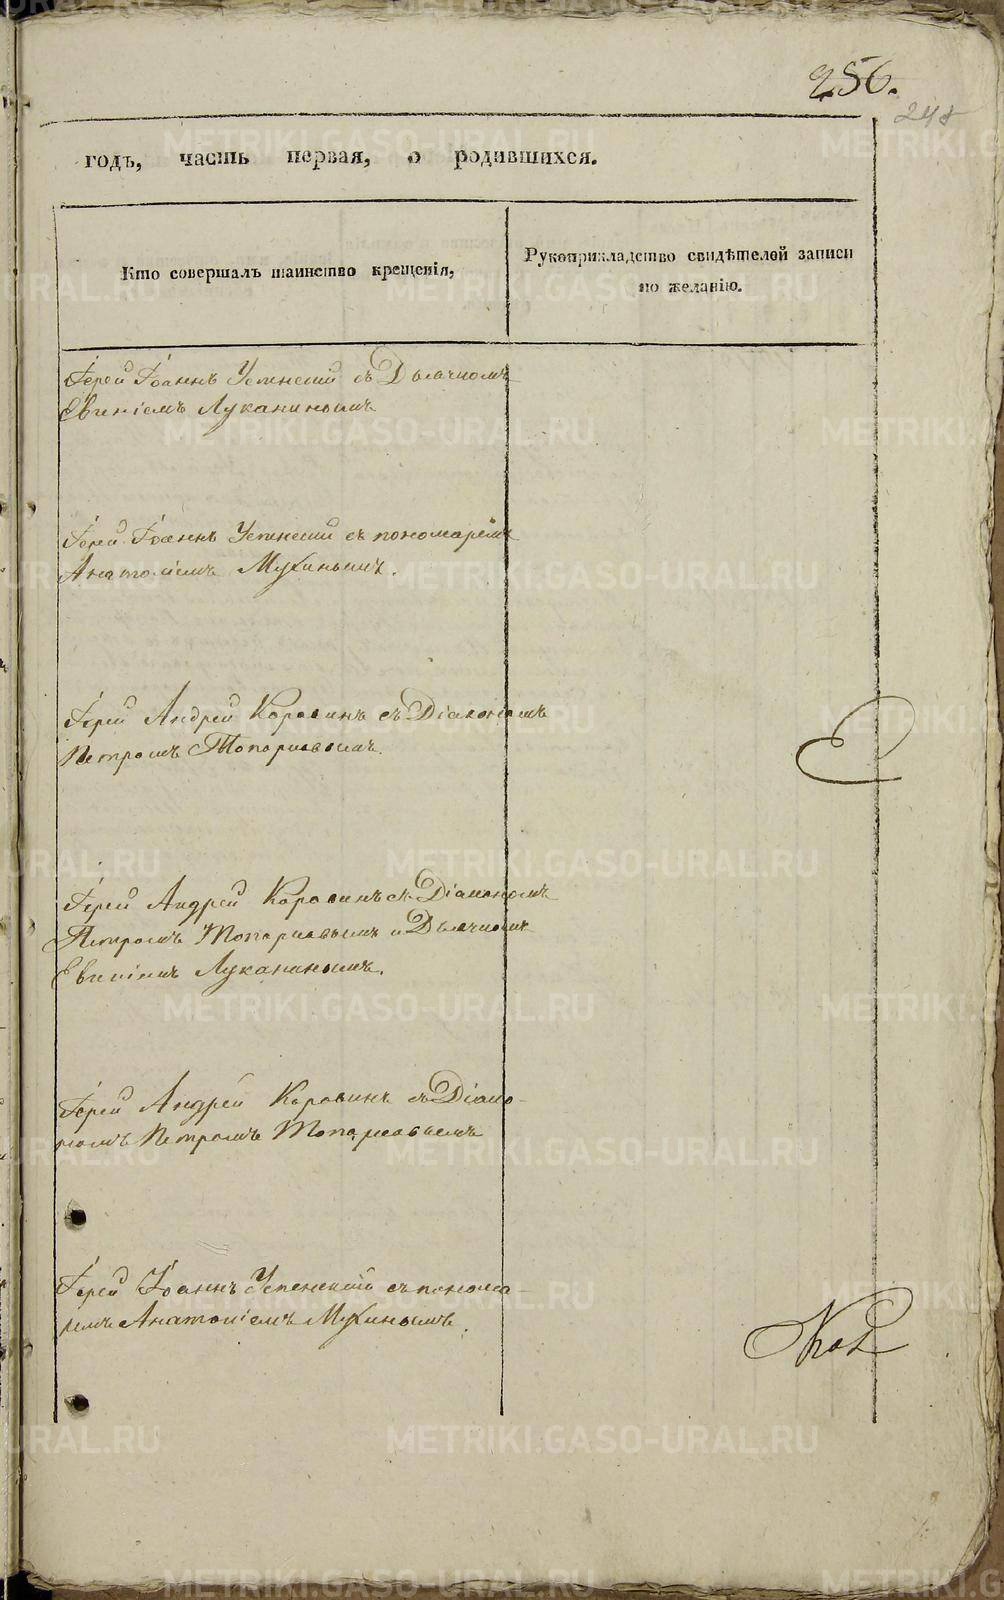 256.
248
годъ, часть первая, о родившихся.
Кто совершалъ таинство крещенія,
Рукоприкладство свидѣтелей записи
по желанію.
Іерей Іоаннъ Успенскій съ Дьячкомъ
Евгеніемъ Луканинымъ
Іерей Іоаннъ Успенскій съ пономаремъ
Анатоліемъ Мухинымъ.
Іерей Андрей Коровинъ съ Діакономъ
Петромъ Топорковымъ.
Іерей Андрей Коровинъ съ Діакономъ
Петромъ Топорковымъ и Дьячкомъ
Евгеніемъ Луканинымъ.
Іерей Андрей Коровинъ съ Діако-
номъ Петромъ Топорковымъ
Іерей Іоаннъ Успенскій съ понома-
ремъ Анатоліемъ Мухинымъ.
METRIKI.GASO-URAL.RU